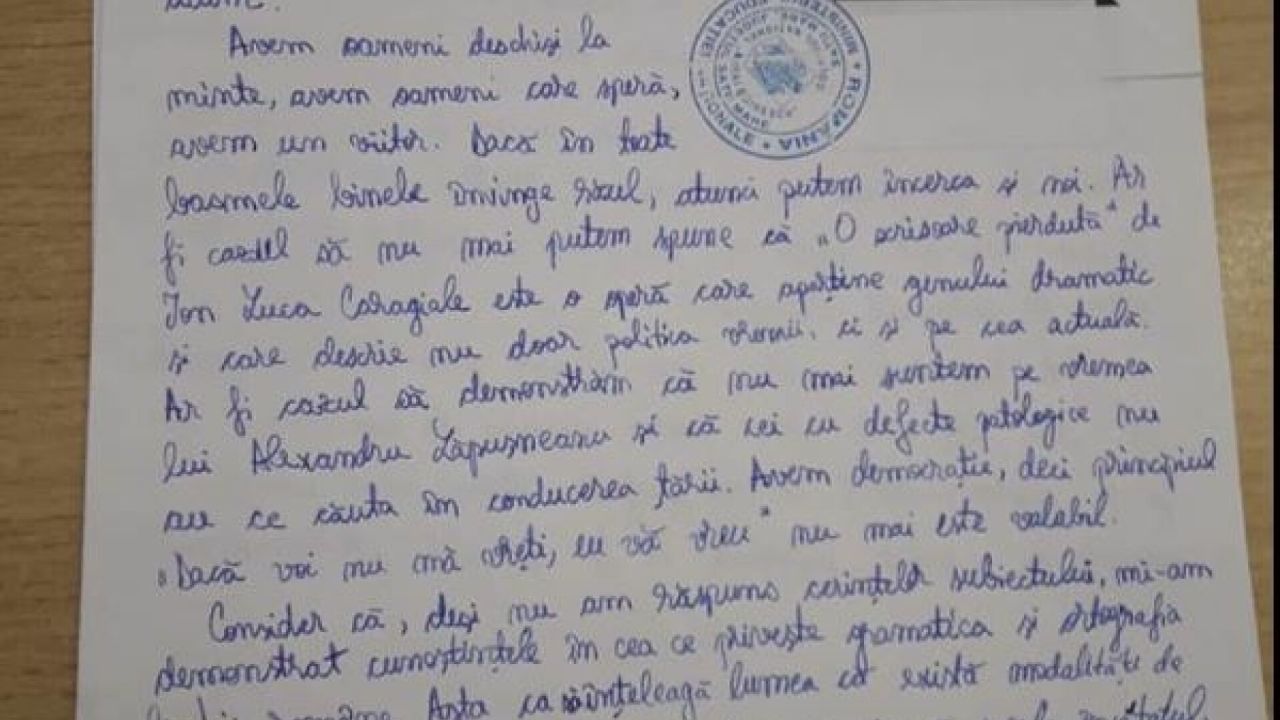 Avem oameni deschiși la
minte, avem oameni care speră,
avem un viitor. Dacă în toate
basmele binele învinge răul, atunci putem încerca și noi. Ar
fi cazul să nu mai putem spune că „O scrisoare pierdută" de
Ion Luca Caragiale este o operă care aparține genului dramatic
și care descrie nu doar politica vremii, ci și pe cea actuală.
Ar fi cazul să demonstrăm că nu mai suntem pe vremea
lui Alexandru Lăpușneanu și că cei cu defecte patologice nu
au ce căuta în conducerea țării. Avem democrație, deci principiul
„Dacă voi nu mă vreți, eu vă vreu" nu mai este valabil.
Consider că, deși nu am răspuns cerințelor subiectului, mi-am
demonstrat cunoștințele în cea ce privește gramatica și ortografia
Asta ca să înțeleagă lumea că există modalități de
ROMÂNIA * MINISTERUL EDUCAȚIEI